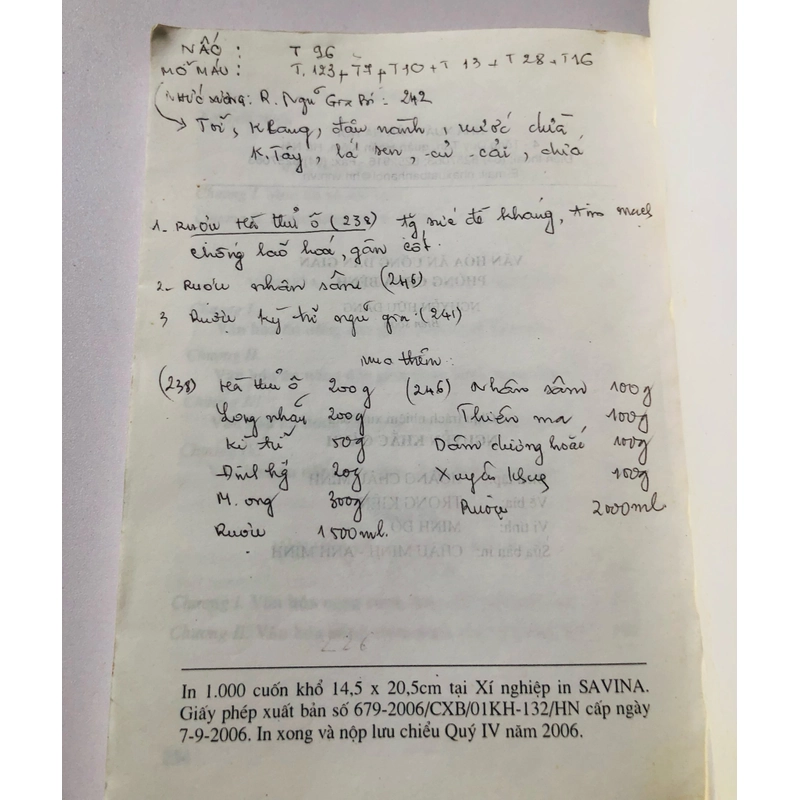 NÃO : T 96
MỠ MÁU : T. 123 + T7 + T10 + T 13 + T 28 + T16
NHỨC XƯƠNG: R. Ngũ Gia Bì : 242
→ Tỏi, K Lang, đậu nành, nước chè
K. Tây, lá sen, củ cải, chiá
1 - Rượu Hà thủ ô (238) tg sức đề kháng, tim mạch
chống laõ hoá, gân cốt.
2 - Rượu nhân sâm (246)
3 Rượu kỷ tử ngũ gia : (241)
mua thêm :
(238) Hà thủ ô 200g (246) Nhân sâm 100g
Long nhãn 200g Thiên ma 100g
Kỉ tử 50g Dâm dương hoắc 100g
Đinh hg 20g Xuyên khug 100g
M. ong 300g Rượu 2000ml.
Rượu 1500ml.
226
In 1.000 cuốn khổ 14,5 x 20,5cm tại Xí nghiệp in SAVINA.
Giấy phép xuất bản số 679-2006/CXB/01KH-132/HN cấp ngày
7-9-2006. In xong và nộp lưu chiểu Quý IV năm 2006.